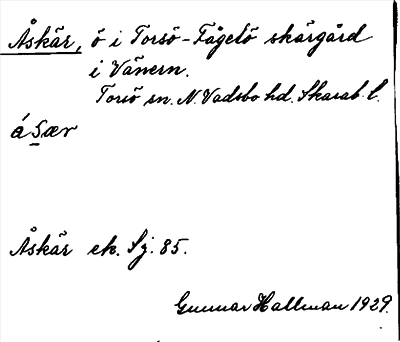 Åskär, ö i Torsö-Fågelö skärgård
i Vänern.
Torsö sn. N. Vadsbo hd. Skarab. l.
áSær
Åskär ek. Sj. 85.
Gunnar Hallman 1929.